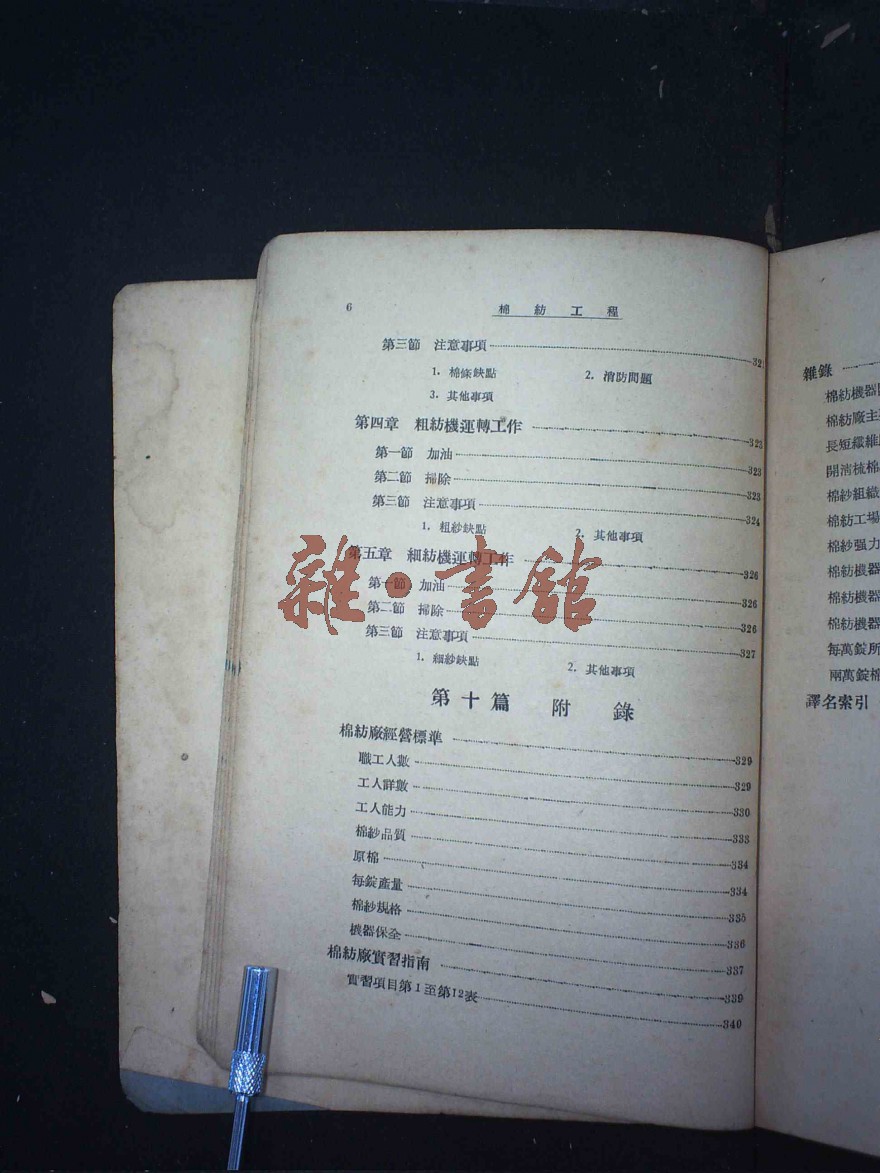 6 棉紡工程
第三節 注意事項 321
1. 棉條缺點 2. 消防問題
3. 其他事項
第四章 粗紡機運轉工作 323
第一節 加油 323
第二節 掃除 323
第三節 注意事項 324
1. 粗紗缺點 2. 其他事項
第五章 細紡機運轉工作 326
第一節 加油 326
第二節 掃除 326
第三節 注意事項 327
1. 細紗缺點 2. 其他事項
第十篇 附錄
棉紡廠經營標準 329
職工人數 329
工人詳數 330
工人能力 333
棉紗品質 334
原棉 334
每錠產量 335
棉紗規格 336
機器保全 337
棉紡廠實習指南 339
實習項目第1至第12表 340
雜·書館
雜錄
棉紡機器
棉紡廠主
長短纖維
開清梳棉
棉紗組織
棉紡工場
棉紗强力
棉紡機器
棉紡機器
棉紡機器
每萬錠所
兩萬錠棉
譯名索引